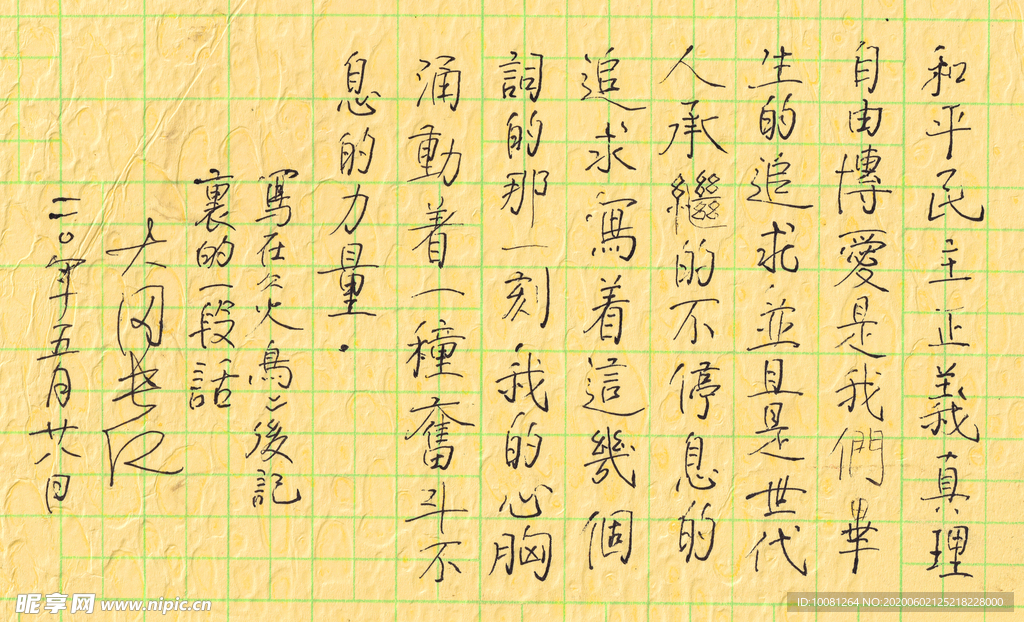 和平民主正義真理
自由博愛是我們畢
生的追求並且是世代
人承繼的不停息的
追求寫着這幾個
詞的那一刻我的心胸
涌動着一種奮斗不
息的力量.
寫在火鳥後記
裏的一段話
大
二〇年五月廿八日
昵享网 www.nipic.cn
ID:10081264 NO:20200602125218228000